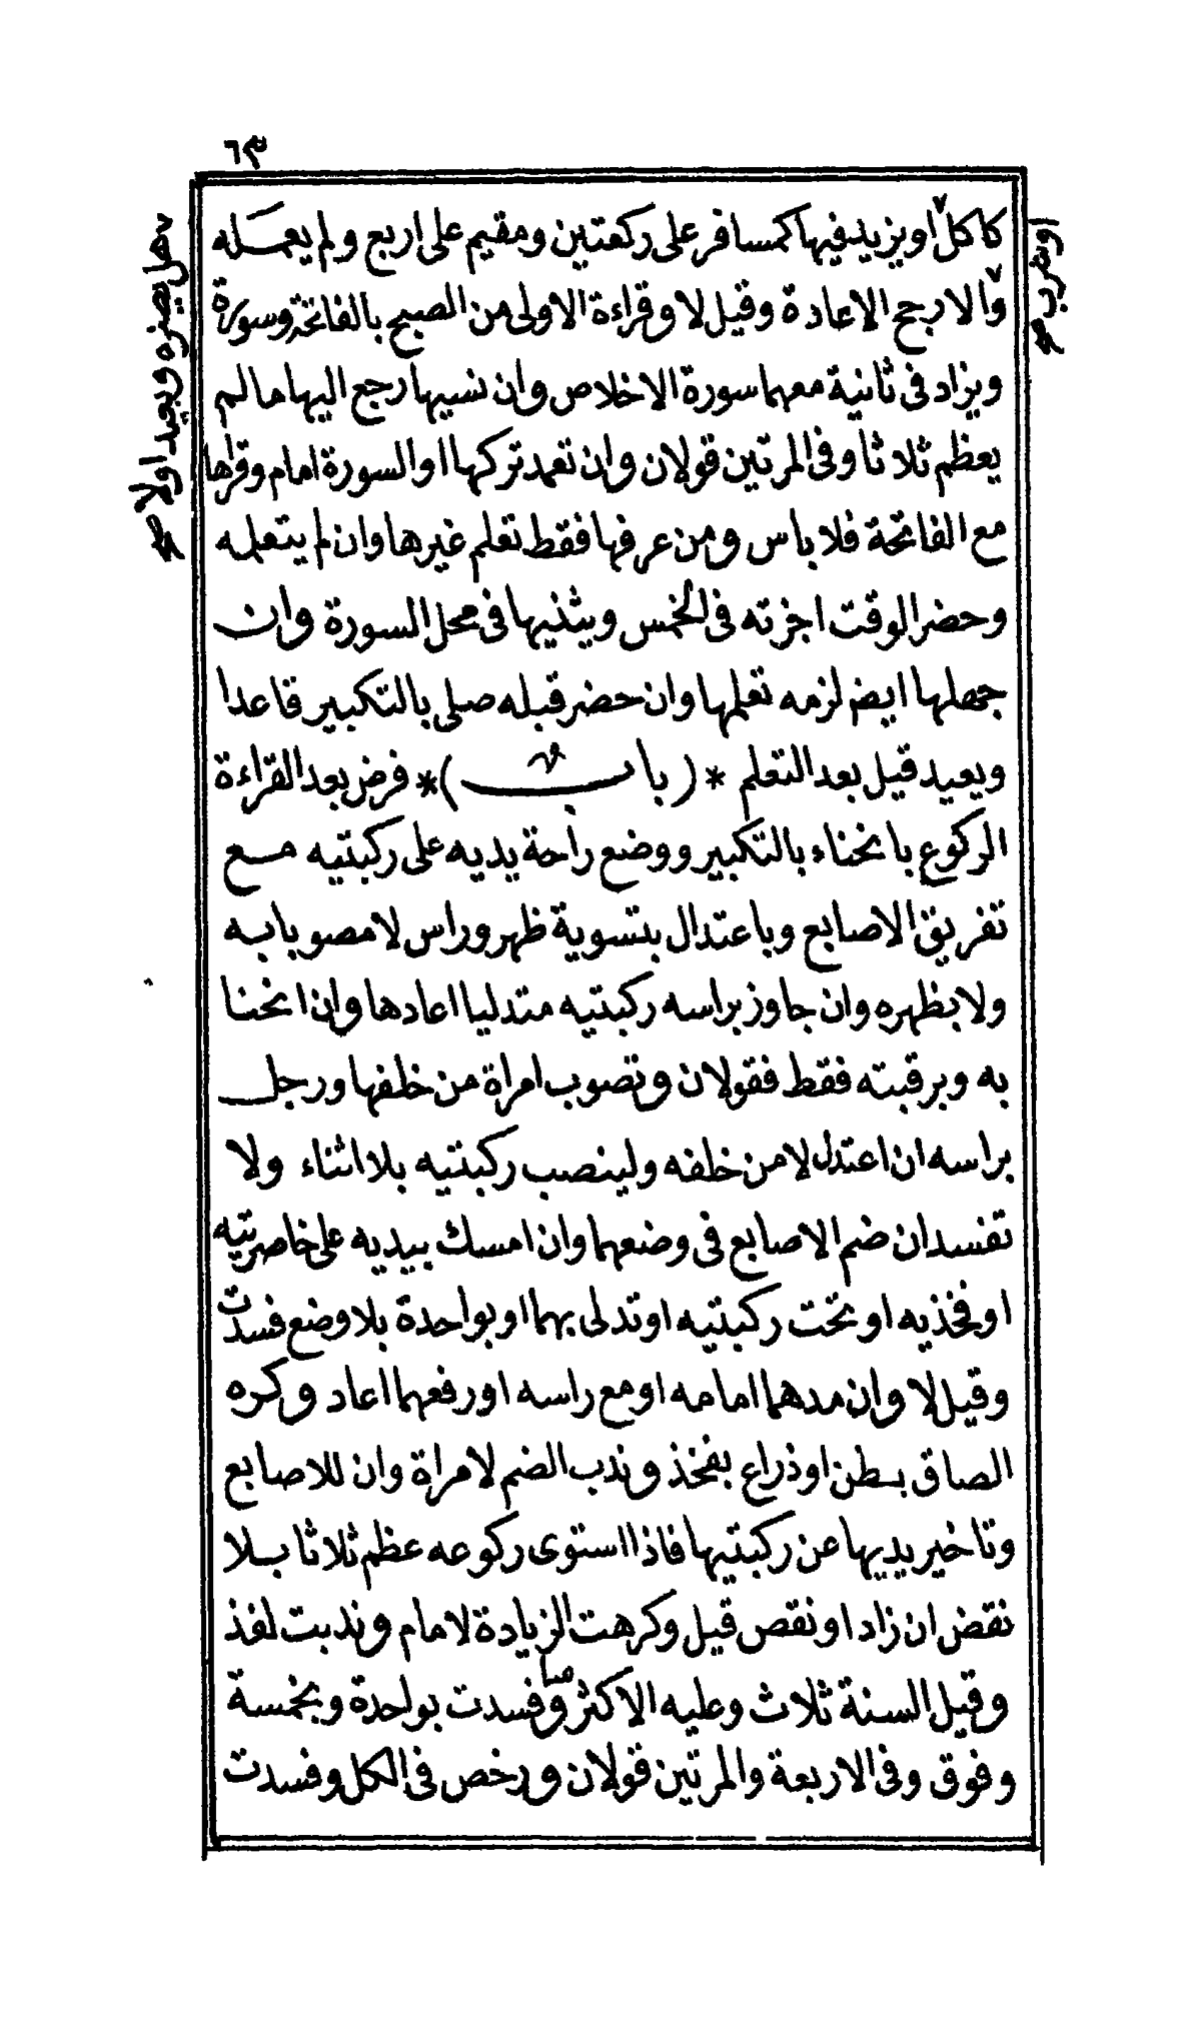 ٦٣
كاكل او يزيد فيها كمسافر على ركعتين ومقيم على اربع ولم يعمله
والارجح الاعادة وقيل لا وقراءة الاولى من الصبح بالفاتحة وسورة
ويزاد فى ثانية معهما سورة الاخلاص وان نسيها رجع اليها مالم
يعظم ثلاثا وفى المرتين قولان وان تعمد تركها او السورة امام وقراها
مع الفاتحة فلا باس ومن عرفها فقط تعلم غيرها وان لم يتعلمه
وحضر الوقت اجزته فى الخمس ويثنيها فى محل السورة وان
جهلها ايضم لزمه تعلمها وان حضر قبله صلى بالتكبير قاعدا
ويعيد قيل بعد التعلم * (باب) * فرض بعد القراءة
الركوع بانحناء بالتكبير ووضع راحة يديه على ركبتيه مع
تفريق الاصابع وباعتدال بتسوية ظهر وراس لا مصوبا به
ولا بظهره وان جاوز براسه ركبتيه متدليا اعادها وان انحنا
به وبرقبته فقط فقولان وتصوب امراة من خلفها ورجل
براسه ان اعتدل لا من خلفه ولينصب ركبتيه بلا اثناء ولا
تفسد ان ضم الاصابع فى وضعهما وان امسك بيديه على خاصرتيه
او فخذيه او تحت ركبتيه او تدلى بهما او بواحدة بلا وضع فسدت
وقيل لا وان مدهما امامه او مع راسه او رفعهما اعاد وكره
الصاق بطن او ذراع بفخذ وندب الضم لامراة وان للاصابع
وتاخير يديها عن ركبتيها فاذا استوى ركوعه عظم ثلاثا بلا
نقض ان زاد او نقص قيل وكرهت الزيادة لامام وندبت لفذ
وقيل السنة ثلاث وعليه الاكثر وفسدت بواحدة وبخمسة
وفوق وفى الاربعة والمرتين قولان ورخص فى الكل وفسدت
او شرب صح
هل يضره ويعيد او لا صح